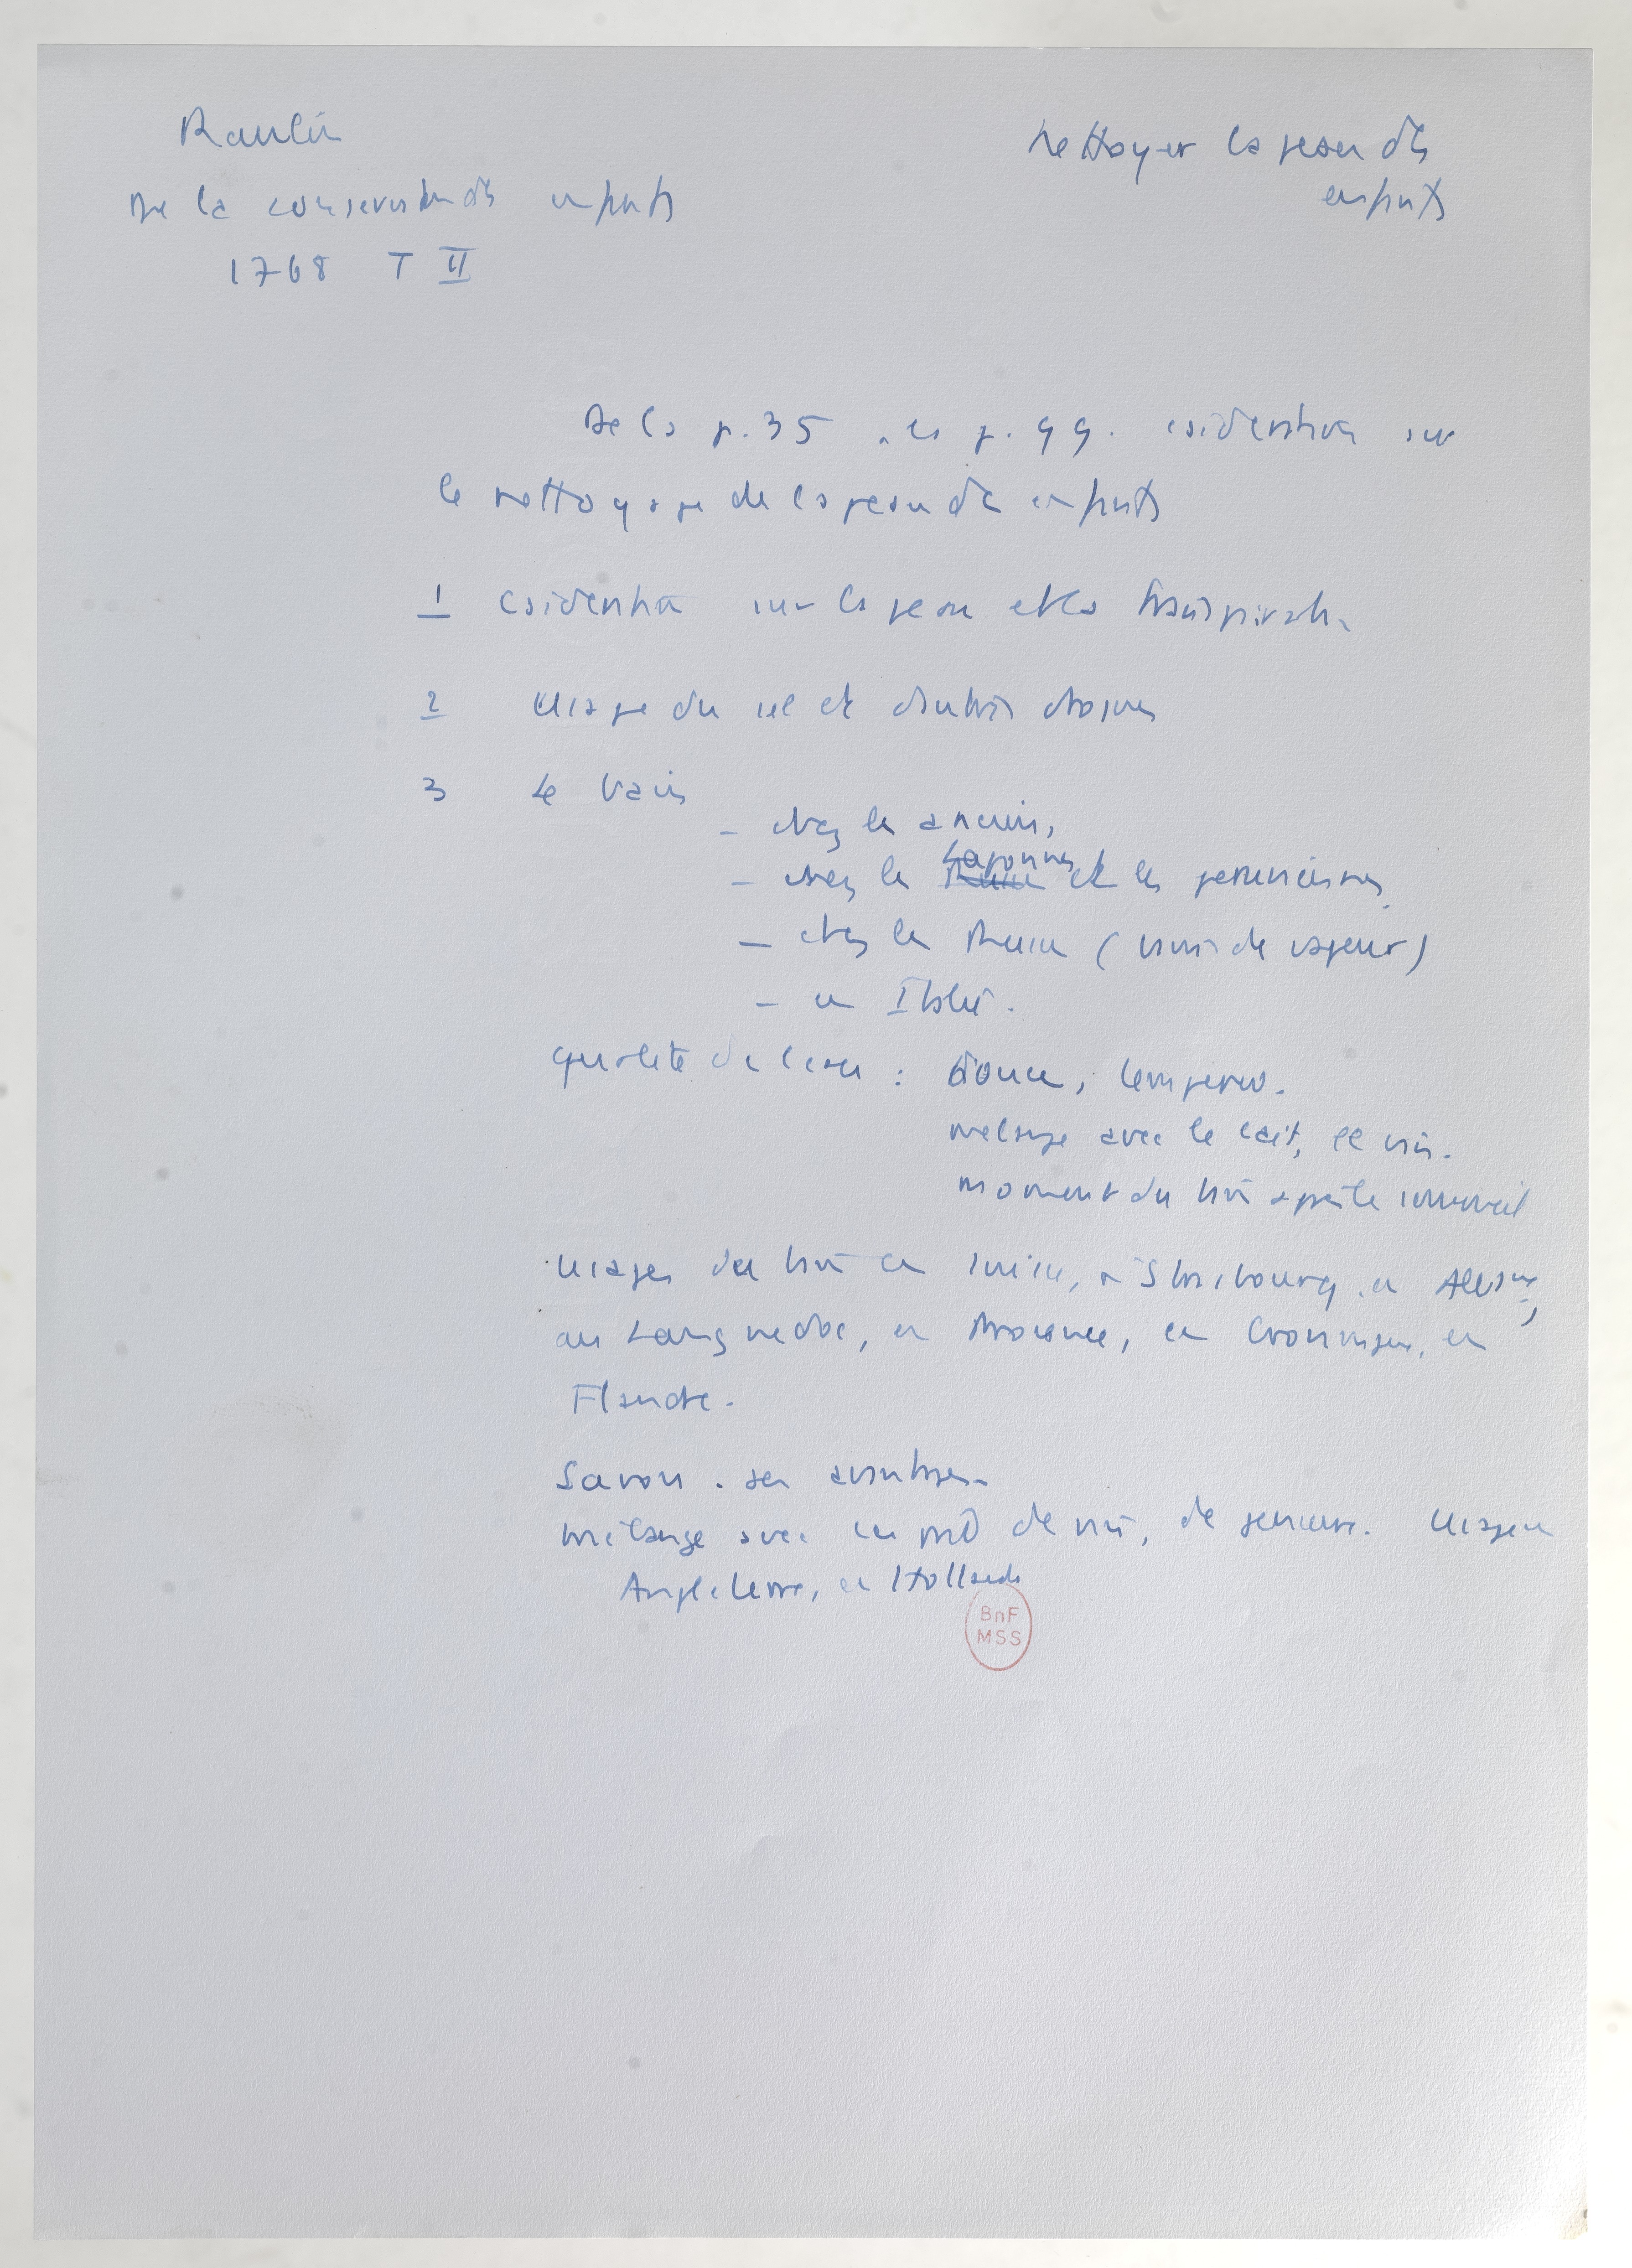 Raulin
De la conservation des enfants
1768 T II
Nettoyer la peau des
enfants
De la p. 35 à la p. 99. considération sur
le nettoyage de la peau des enfants
1 Considération sur la peau et la transpiration
2 Usage du sel et d'autres choses
3 Le bain
- chez les anciens,
- chez les Russes Lapons et les péruviennes
- chez les Russes (bains de vapeur)
- en Italie.
qualité de l'eau : douce, température.
mélange avec le lait, le vin.
moment du bain après le sommeil
Usages du bain en Suisse, à Strasbourg, en Allemagne,
au Languedoc, en Provence, en
Flandre.
Savon. ses avantages.
Mélange avec un peu de vin, de Usage en
Angleterre, en Hollande
BnF
MSS